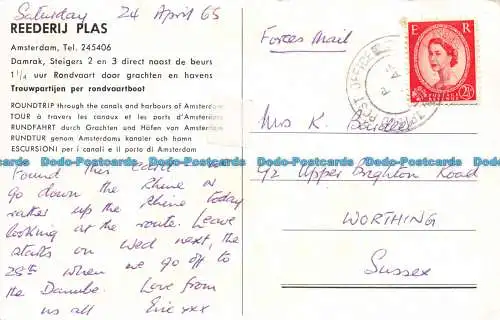 Saturday 24 April 65
REEDERIJ PLAS
Amsterdam, Tel. 245406
Damrak, Steigers 2 en 3 direct naast de beurs
1¼ uur Rondvaart door grachten en havens
Trouwpartijen per rondvaartboot
ROUNDTRIP through the canals and harbours of Amsterdam
TOUR à travers les canaux et les ports d'Amsterdam
RUNDFAHRT durch Grachten und Häfen von Amsterdam
RUNDTUR genom Amsterdams kanaler och hamn
ESCURSIONI per i canali e il porto di Amsterdam
Found this card
go down the Rhine or
rather up the Rhine today
looking at the route. Leave
starts on Wed next, the
28th when we go off to
the Danube. Love from
us all Eric xxx
Forces Mail
E R
POSTAGE REVENUE
2½D
POST OFFICE
Mrs K.
92 Upper Brighton Road
WORTHING
Sussex
Dodo-Postcards Dodo-Postcards Dodo-Postcards Dodo-Postcards Dodo-Postcards